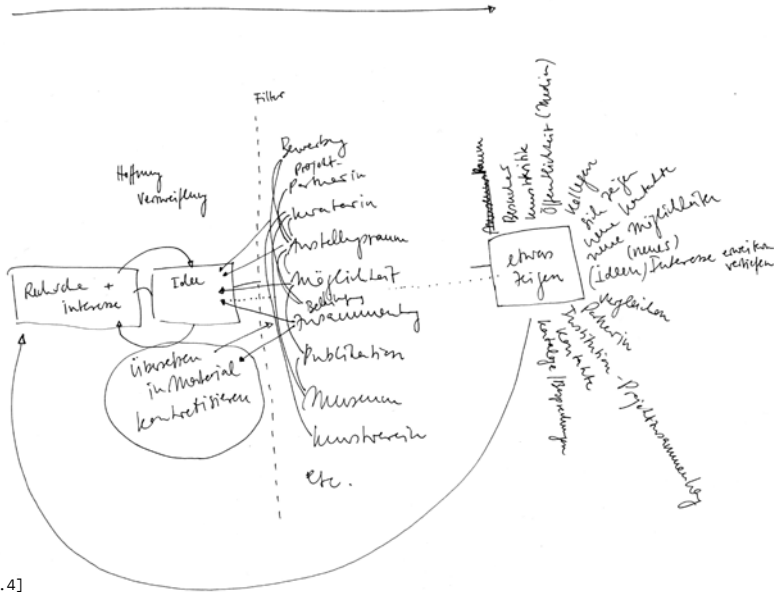 Filter
Hoffnung
Verzweiflung
Recherche +
interesse
Idee
übersetzen
in Material
konkretisieren
Bewerbung
Projekt-
Partnerin
Kuratorin
Ausstellungsraum
Möglichkeit
Zusammenhang
Publikation
Museum
Kunstverein
etc.
etwas
zeigen
Besucher
Kunstkritik
Öffentlichkeit (Medien)
Kollegen
sich zeigen
neue Kontakte
neue Möglichkeiten
(neues)
(Ideen) Interesse erweitern
vertiefen
vergleichen
Partnerin
Institution - Projektzusammenhang
Kontakte
Kataloge/Besprechungen
.4]